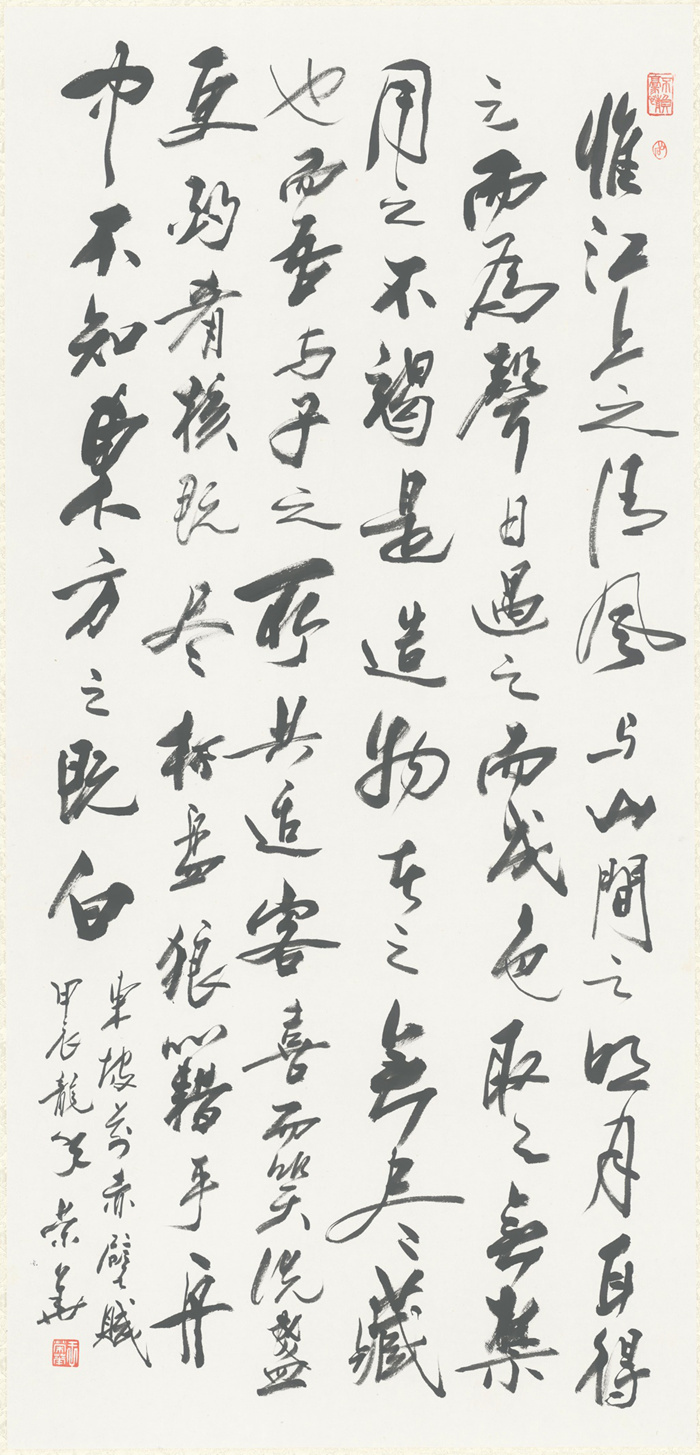 惟江上之清风与山間之明月耳得
之而為聲目遇之而成色取之無禁
用之不竭是造物者之無尽藏
也而吾与子之所共适客喜而笑洗盞
更酌肴核既尽杯盘狼籍乎舟
中不知東方之既白
東坡前赤壁賦
甲辰龍年荣華